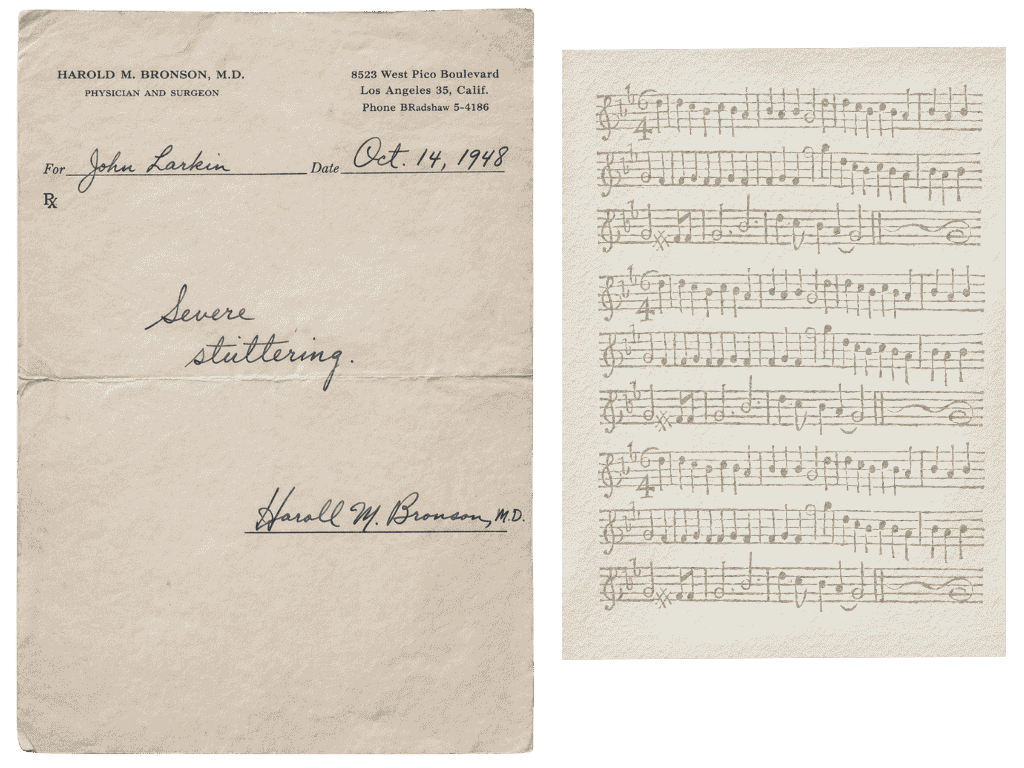 HAROLD M. BRONSON, M.D.
PHYSICIAN AND SURGEON
8523 West Pico Boulevard
Los Angeles 35, Calif.
Phone BRadshaw 5-4186
For John Larkin Date Oct. 14, 1948
Rx
Severe
stuttering.
Harold M. Bronson, M.D.
6
4
6
4
6
4